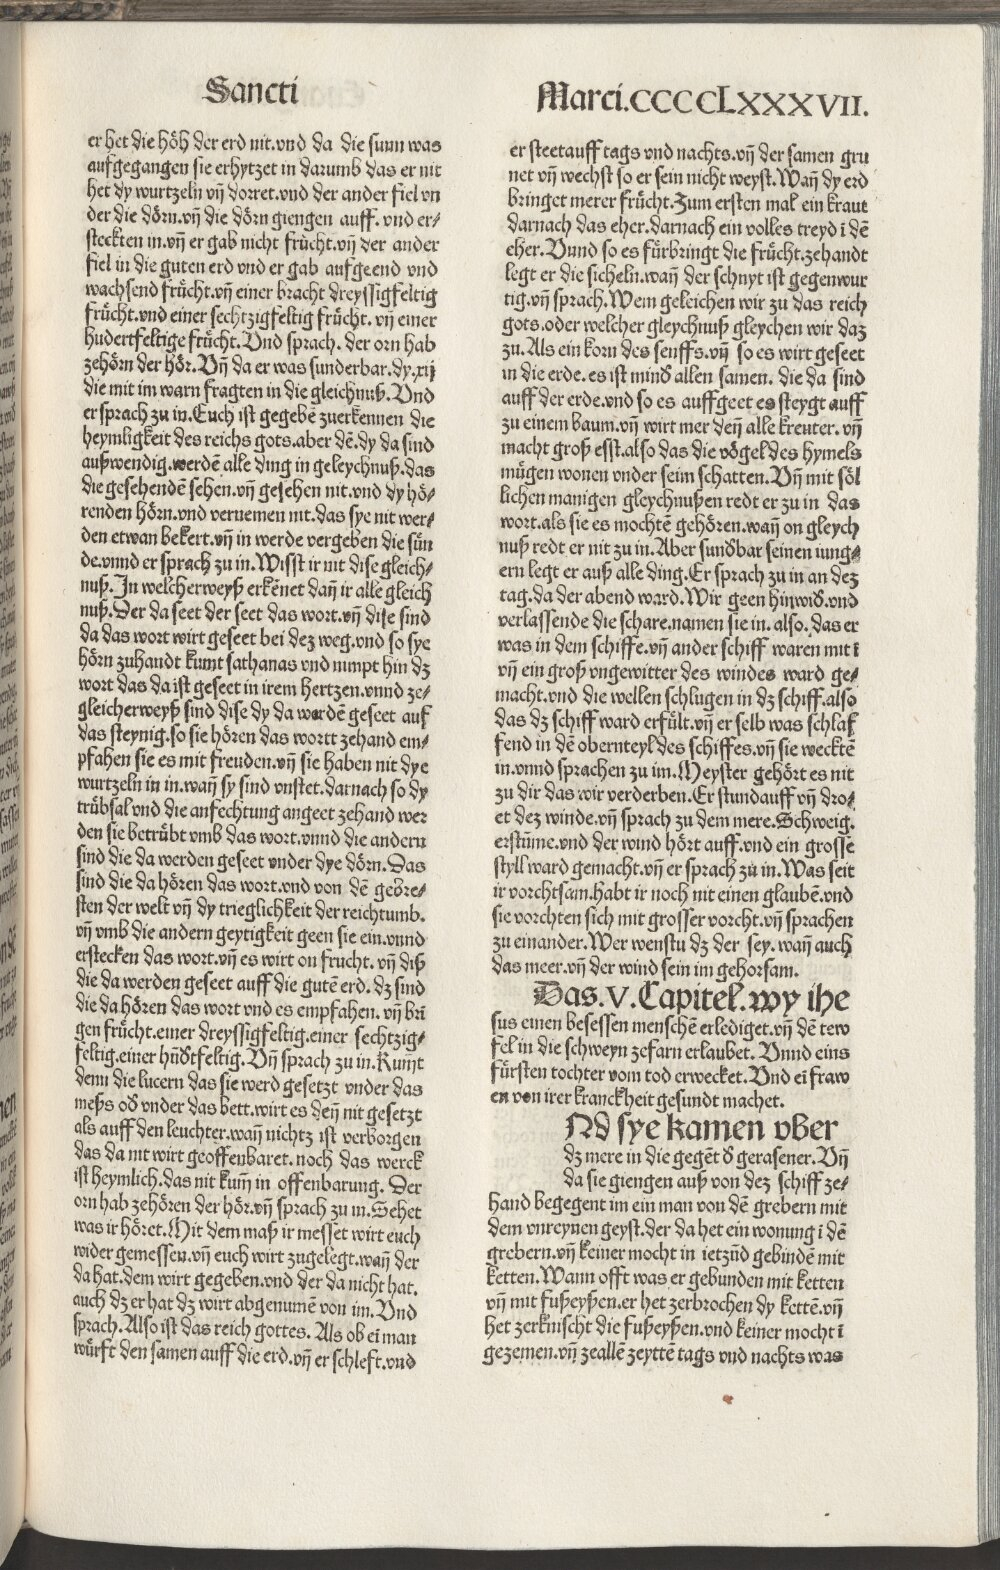 Sancti
er het die höh der erd nit.vnd da die sunn was
aufgegangen sie erhytzet in darumb das er nit
het dy wurtzeln vñ dorret.vnd der ander fiel vn
der die dörn.vñ die dörn giengen auff. vnd er⸗
steckten in.vñ er gab nicht frücht.vñ der ander
fiel in die guten erd vnd er gab aufgeend vnd
wachsend frücht.vñ einer bracht dreyssigfeltig
frücht.vnd einer sechtzigfeltig frücht. vñ einer
hudertfeltige frücht. Vnd sprach. der orn hab
zehörn der hör. Vñ da er was sunderbar.dy.xij
die mit im warn fragten in die gleichnuß. Vnd
er sprach zu in. Euch ist gegebē zuerkennen die
heymligkeit des reichs gots.aber dē.dy da sind
außwendig.werdē alle ding in geleychnuß.das
die gesehendē sehen.vñ gesehen nit.vnd dy hö⸗
renden hörn.vnd vernemen nit.das sye nit wer⸗
den etwan bekert.vñ in werde vergeben die sün
de.vnnd er sprach zu in. Wisst ir nit dise gleich⸗
nuß. In welcherweyß erkēnet dañ ir alle gleich
nuß. Der da seet der seet das wort.vñ dise sind
da das wort wirt geseet bei dez weg.vnd so sye
hörn zuhandt kumt sathanas vnd nimpt hin dz
wort das da ist geseet in irem hertzen.vnnd ze⸗
gleicherweyß sind dise dy da werdē geseet auf
das steynig.so sie hören das wortt zehand em⸗
pfahen sie es mit freuden.vñ sie haben nit dye
wurtzeln in in.wañ sy sind vnstet.darnach so dy
trübsal vnd die anfechtung angeet zehand wer
den sie betrübt vmb das wort.vnnd die andern
sind die da werden geseet vnder dye dörn. Das
sind die da hören das wort.vnd von dē gebre⸗
sten der welt vñ dy trieglichkeit der reichtumb.
vñ vmb die andern geytigkeit geen sie ein.vnnd
erstecken das wort.vñ es wirt on frucht. vñ diß
die da werden geseet auff die gutē erd. dz sind
die da hören das wort vnd es empfahen. vñ brī
gen frücht.einer dreyssigfeltig.einer sechtzig⸗
feltig.einer hūdtfeltig. Vñ sprach zu in. Kumt
denn die lucern das sie werd gesetzt vnder das
meßs od vnder das bett.wirt es deñ nit gesetzt
als auff den leuchter.wañ nichtz ist verborgen
das da nit wirt geoffenbaret.noch das werck
ist heymlich.das nit kum̄ in offenbarung. Der
orn hab zehören der hör.vñ sprach zu in. Sehet
was ir höret. Mit dem maß ir messet wirt euch
wider gemessen.vñ euch wirt zugelegt.wañ der
da hat.dem wirt gegeben.vnd der da nicht hat.
auch dz er hat dz wirt abgenumē von im. Vnd
sprach. Also ist das reich gottes. Als ob eī man
würft den samen auff die erd.vñ er schleft.vnd
Marci.CCCCCLXXXVII.
er steetauff tags vnd nachts.vñ der samen gru
net vñ wechst so er sein nicht weyst. Wañ dy erd
bringet merer frücht. Zum ersten mal ein kraut
darnach das eher.darnach ein volles treyd ī dē
eher. Vnnd so es fürbringt die frücht.zehandt
legt er die sicheln.wañ der schnyt ist gegenwur
tig.vñ sprach. Wem geleichen wir zu das reich
gots.oder welcher gleychnuß gleychen wir daz
zu. Als ein korn des senffs.vñ so es wirt geseet
in die erde.es ist mind allen samen. die da sind
auff der erde.vnd so es auffgeet es steygt auff
zu einem baum.vñ wirt mer deñ alle kreuter. vñ
macht groß esst.also das die vögel des hymels
mügen wonen vnder seim schatten. Vñ mit söl
lichen manigen gleychnußen redt er zu in das
wort.als sie es mochtē gehören.wañ on gleych
nuß redt er nit zu in. Aber sundbar seinen iung⸗
ern legt er auß alle ding. Er sprach zu in an dez
tag.da der abend ward. Wir geen hinwid.vnd
verlassende die schare.namen sie in. also. das er
was in dem schiffe.vñ ander schiff waren mit ī
vñ ein groß vngewitter des windes ward ge⸗
macht.vnd die wellen schlugen in dz schiff.also
das dz schiff ward erfült.vñ er selb was schlaf
fend in dē obernteyl des schiffes.vñ sie wecktē
in.vnnd sprachen zu im. Meyster gehört es nit
zu dir das wir verderben. Er stundauff vñ dro⸗
et dez winde.vñ sprach zu dem mere. Schweig.
erstūme.vnd der wind hört auff.vnd ein grosse
styll ward gemacht.vñ er sprach zu in. Was seit
ir vorchtsam.habt ir noch nit einen glaubē.vnd
sie vorchten sich mit grosser vorcht.vñ sprachen
zu einander. Wer wenstu dz der sey. wañ auch
das meer.vñ der wind sein im gehorsam.
Das.V.Capitel.wy ihe
sus einen besessen menschē erlediget.vñ dē tew
fel in die schweyn zefarn erlaubet. Vnnd eins
fürsten tochter vom tod erwecket. Vnd eī fraw
en von irer kranckheit gesundt machet.
Nd sye kamen vber
dz mere in die gegēt d gerasener. Vñ
da sie giengen auß von dez schiff ze⸗
hand begegent im ein man von dē grebern mit
dem vnreynen geyst.der da het ein wonung ī dē
grebern.vñ keiner mocht in ietzūd gebindē mit
ketten. Wann offt was er gebunden mit ketten
vñ mit fußeyßen.er het zerbrochen dy kettē.vñ
het zerknischt die fußeyßen.vnd keiner mocht ī
gezemen.vñ zeallē zeyttē tags vnd nachts was